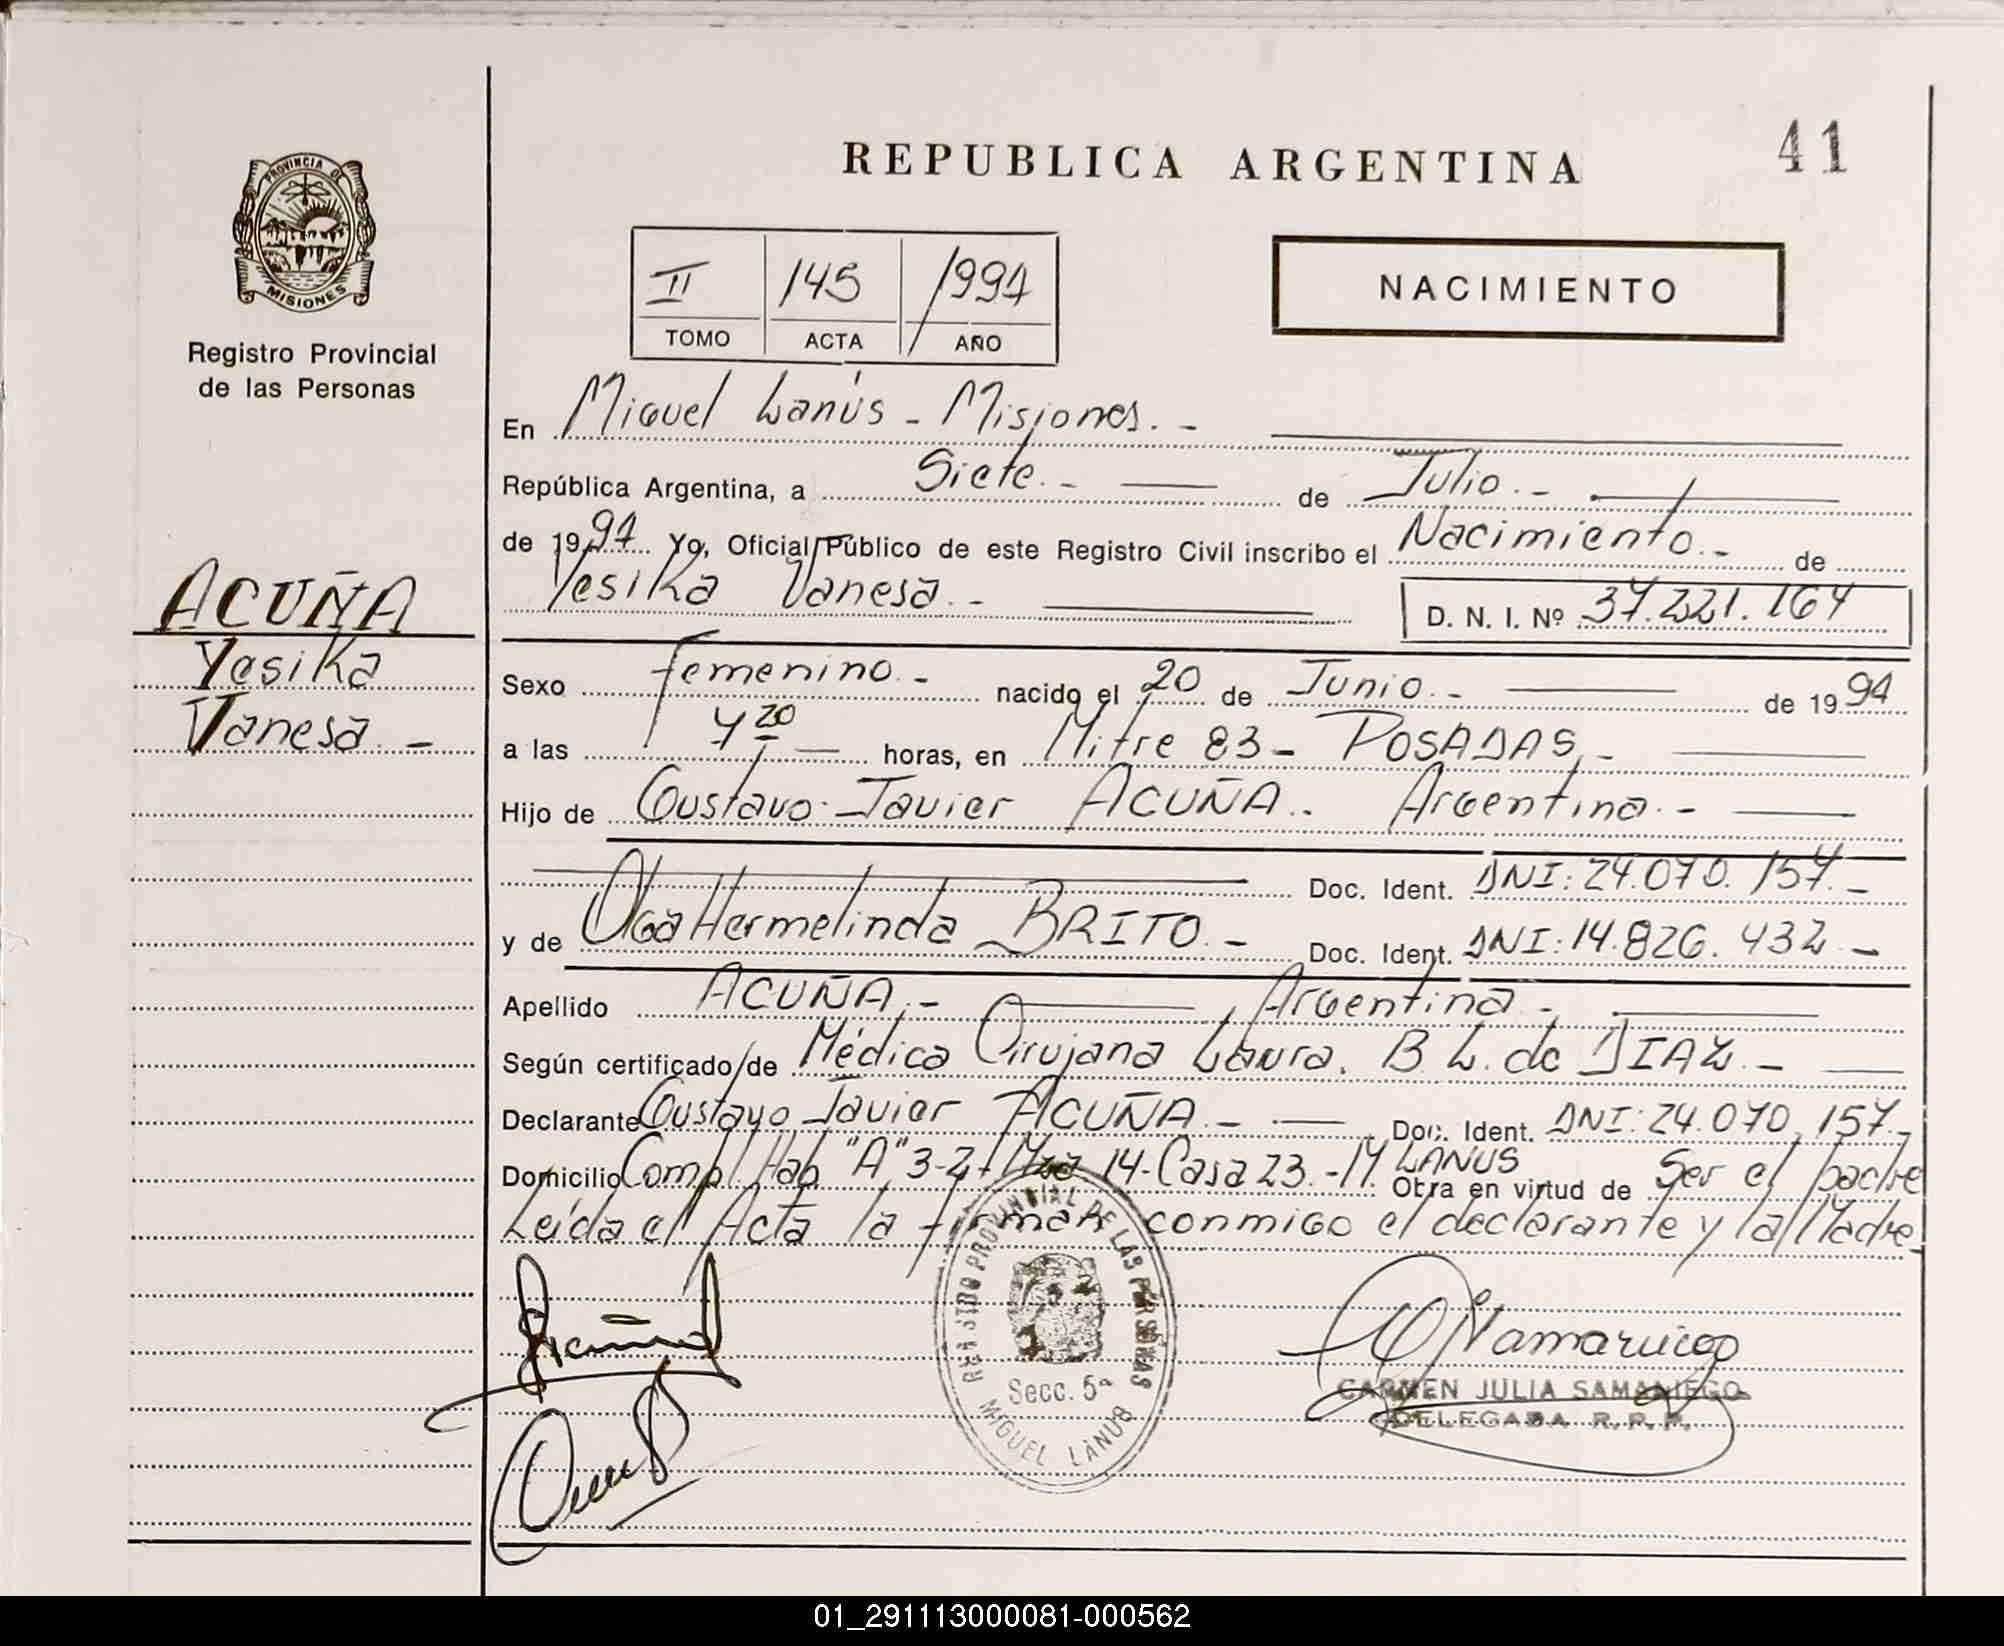 REPUBLICA ARGENTINA
41
PROVINCIA DE
MISIONES
Registro Provincial
de las Personas
II 145 1994
TOMO ACTA AÑO
NACIMIENTO
En Miguel Lanús - Misiones. -
República Argentina, a Siete. - de Julio. -
de 1994 Yo, Oficial Público de este Registro Civil inscribo el Nacimiento. - de
Yesika Vanesa. - D. N. I. Nº 37.221.164
ACUÑA
Yesika
Vanesa. -
Sexo femenino. - nacido el 20 de Junio. - de 1994
a las 4 20 horas, en Mitre 83 - POSADAS. -
Hijo de Gustavo Javier ACUÑA. - Argentina. -
Doc. Ident. DNI: 24.070.157. -
y de Olga Hermelinda BRITO. - Doc. Ident. DNI: 14.826.432 -
Apellido ACUÑA. - Argentina. -
Según certificado de Médica Cirujana Laura. B L. de DIAZ. -
Declarante Gustavo Javier ACUÑA. - Doc. Ident. DNI: 24.070.157. -
Domicilio Comp. Hab "A" 3-2- Mza 14 - Casa 23. - M. LANUS Otra en virtud de Ser el padre
Leída el Acta la firman conmigo el declarante y la Madre
REGISTRO PROVINCIAL DE LAS PERSONAS
Secc. 5ª
MIGUEL LANUS
CARMEN JULIA SAMANIEGO
DELEGADA R.P.P.
01_291113000081-000562